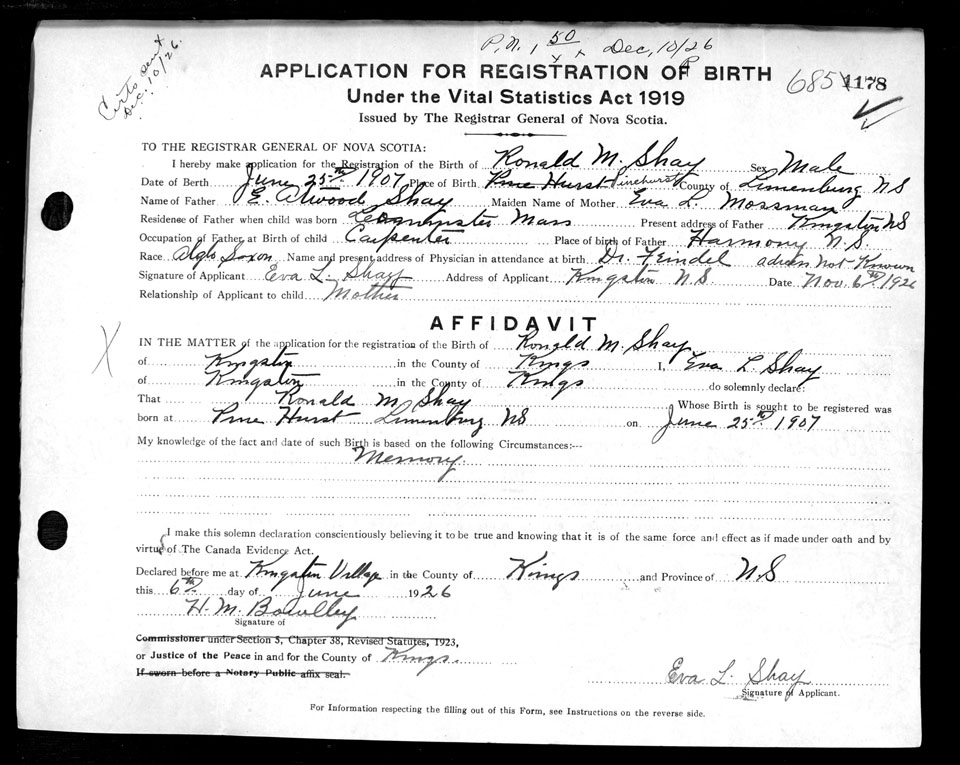 P.N. 1 50 Dec, 10/26
Certs sent
Dec. 10/26.
APPLICATION FOR REGISTRATION OF BIRTH
685
1178
Under the Vital Statistics Act 1919
Issued by The Registrar General of Nova Scotia.
TO THE REGISTRAR GENERAL OF NOVA SCOTIA:
I hereby make application for the Registration of the Birth of Ronald M. Shay Sex Male
Date of Berth June 25th 1907 Place of Birth Pine Hurst Pinehurst County of Lunenburg NS
Name of Father E. Atwood Shay Maiden Name of Mother Eva L. Mossman
Residence of Father when child was born Leominster Mass Present address of Father Kingston NS
Occupation of Father at Birth of child Carpenter Place of birth of Father Harmony N.S.
Race Anglo Saxon Name and present address of Physician in attendance at birth. Dr. adress Not Known
Signature of Applicant Eva L. Shay Address of Applicant Kingston N.S. Date Nov. 6th 1926
Relationship of Applicant to child Mother
AFFIDAVIT
IN THE MATTER of the application for the registration of the Birth of Ronald M. Shay
of Kingston in the County of Kings I, Eva L. Shay
of Kingston in the County of Kings do solemnly declare:
That Ronald M. Shay Whose Birth is sought to be registered was
born at Pine Hurst Lunenburg NS on June 25th 1907
My knowledge of the fact and date of such Birth is based on the following Circumstances:--
Memory.
I make this solemn declaration conscientiously believing it to be true and knowing that it is of the same force and effect as if made under oath and by
virtue of The Canada Evidence Act.
Declared before me at Kingston Village in the County of Kings and Province of N.S
this 6th day of June 1926
H. M.
Signature of
Commissioner under Section 3, Chapter 38, Revised Statutes, 1923,
or Justice of the Peace in and for the County of Kings.
If sworn before a Notary Public affix seal.
Eva L. Shay
Signature of Applicant.
For Information respecting the filling out of this Form, see Instructions on the reverse side.